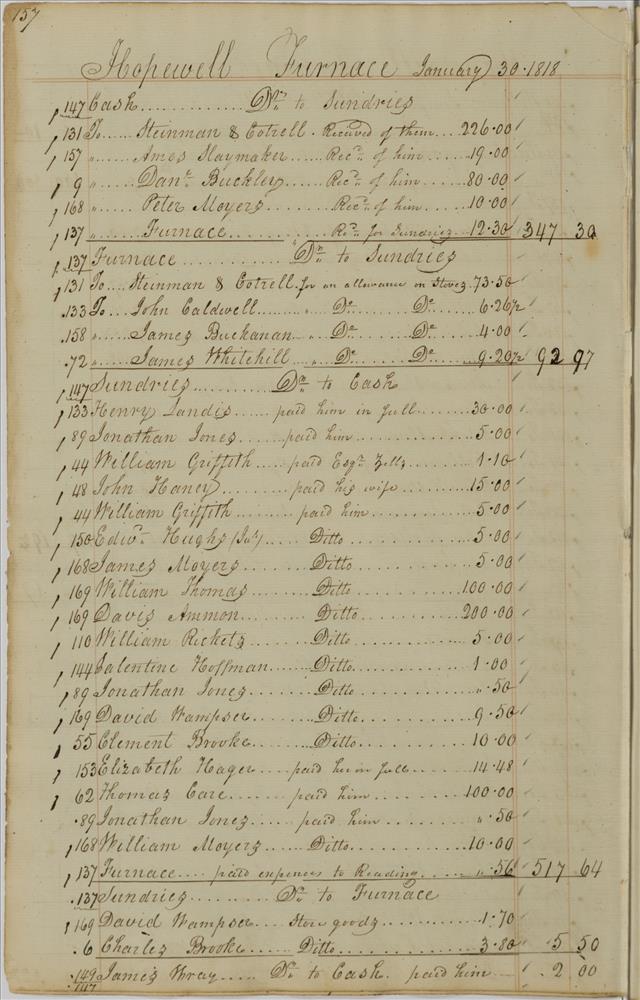 157
Hopewell Furnace January 30 · 1818
147 Cash ............ Dr. to Sundries
131 To ..... Steinman & Cotrell . Received of them .... 226.00
157 " ..... Ames Slaymaker ...... Recd. of him .... 19.00
9 " ..... Danl. Buckley ...... Recd. of him .... 80.00
168 " ..... Peter Moyers ........ Recd. of him .... 10.00
137 " ..... Furnace ............ Recd. for Sundries .. 12.30 347 30
137 Furnace ............ Dr. to Sundries
131 To .... Steinman & Cotrell . for an allowance on Stoves . 73.50
133 To .... John Caldwell ........ " Do ....... Do ..... 6.26½
158 " ..... James Buchanan .. " Do ....... Do ..... 4.00
72 " ..... James Whitehill .... " Do ....... Do ..... 9.20½ 92 97
147 Sundries ............ Dr. to Cash
133 Henry Landis ...... paid him in full ........ 30.00
89 Jonathan Jones ...... paid him ............ 5.00
44 William Griffith ..... paid Esqr. Zells ........ 1.10
48 John Haney ......... paid his wife ........ 15.00
44 William Griffith ........ paid him .......... 5.00
150 Edwd. Hughs (Jur) ...... Ditto ............ 5.00
168 James Moyers .......... Ditto ............ 5.00
169 William Thomas ........ Ditto ............ 100.00
169 Davis Ammon .......... Ditto ............ 200.00
110 William Ricketts ........ Ditto ............ 5.00
144 Valentine Hoffman ...... Ditto ............ 1.00
89 Jonathan Jones .......... Ditto ............ " .50
169 David Wampser .......... Ditto ............ 9.50
55 Clement Brooke .......... Ditto ............ 10.00
153 Elizabeth Hager .... paid her in full ...... 14.48
62 Thomas Care ........ paid him .......... 100.00
89 Jonathan Jones ...... paid him .......... " .50
168 William Moyers ...... Ditto ............ 10.00
137 Furnace .... paid expences to Reading ...... " .56 517 64
137 Sundries ............ Dr. to Furnace
169 David Wampser .... Store goods .......... 1.70
6 Charles Brooke ...... Ditto ............ 3.80 5 50
149 James Wray ..... Dr. to Cash . paid him ---- 2 00
147